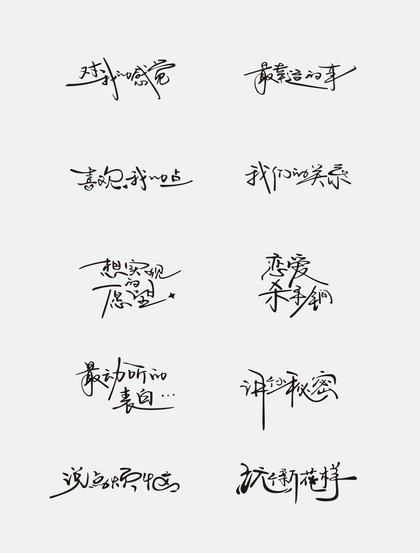 对我的感觉
最幸运的事
喜欢我的点
我们的关系
想实现
的
愿望
恋爱
杀手锏
最动听的
表白...
讲个秘密
说点烦恼
玩个新花样